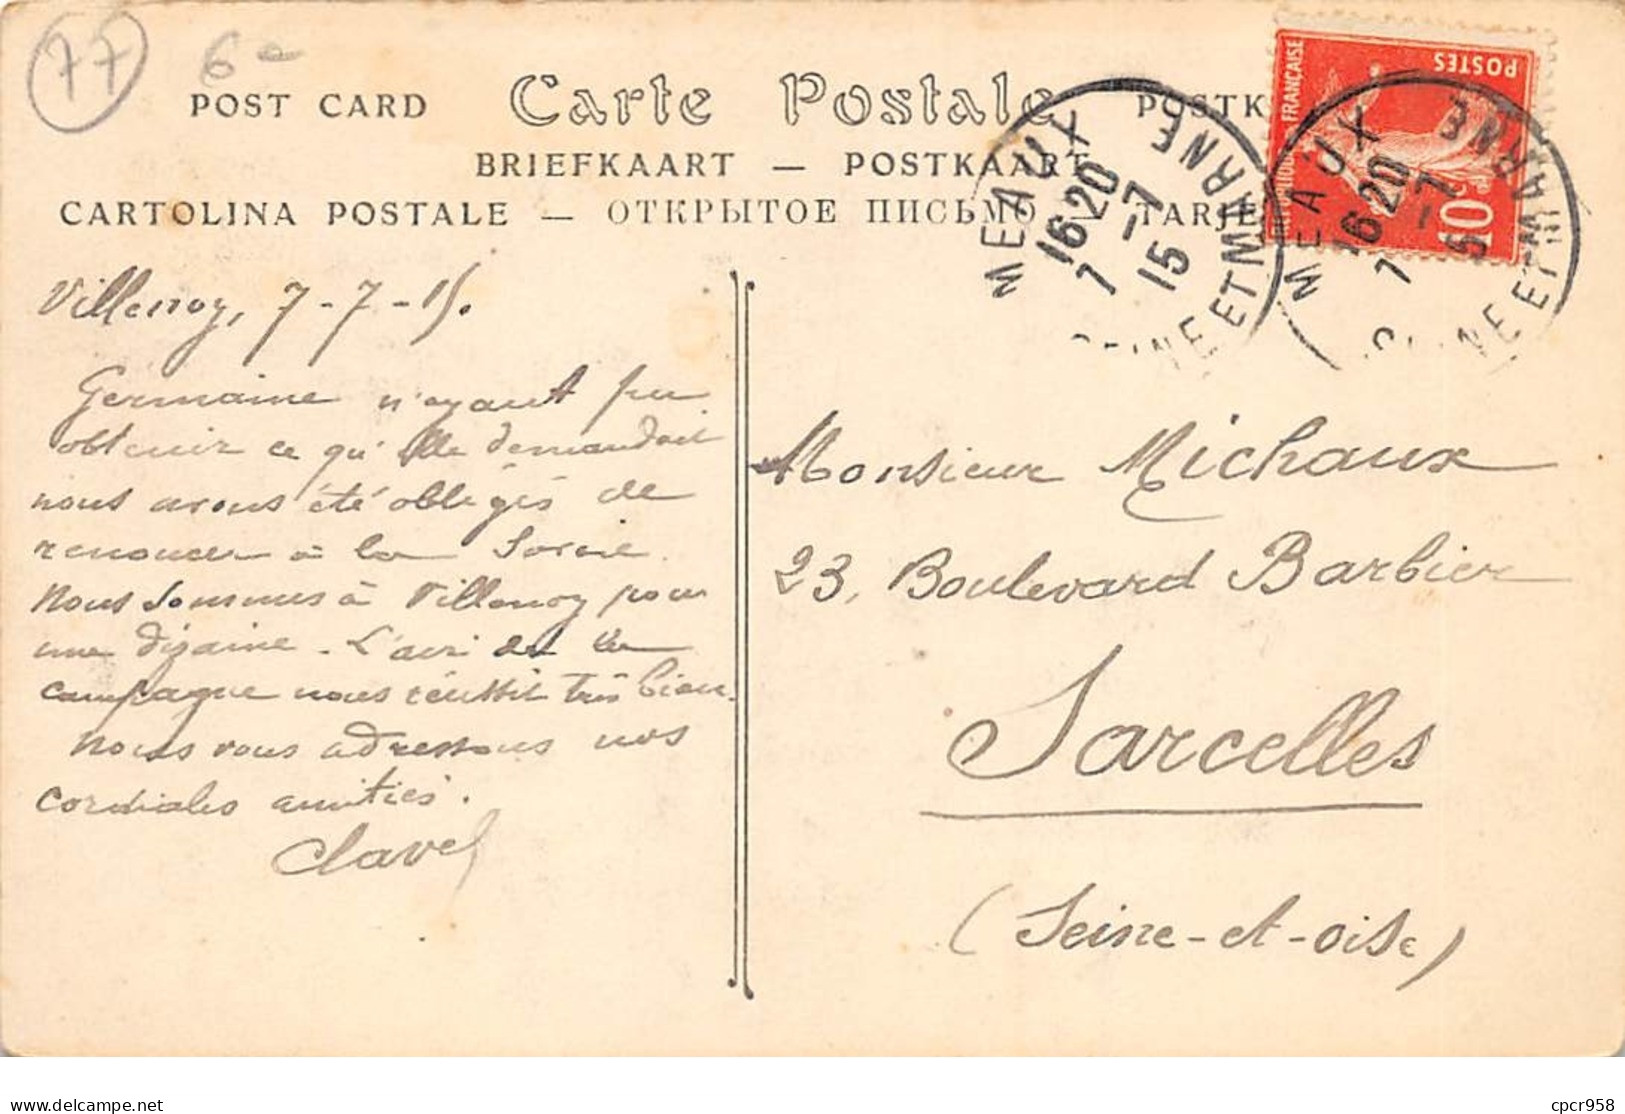 77
6-
POST CARD Carte Postale POSTK
BRIEFKAART — POSTKAART
CARTOLINA POSTALE — ОТКРЫТОЕ ПИСЬМО — TARJE
FRANÇAISE
POSTES
10c
MEAUX
16 20
7 -7
15
SEINE ET MARNE
MEAUX
16 20
7 -7
15
SEINE ET MARNE
Villenoy, 7-7-15.
Germaine n'ayant pu
obtenir ce qu'elle demandait
nous avons été obligés de
renoncer à la
Nous sommes à Villenoy pour
une dizaine. L'air de la
campagne nous réussit très bien.
Nous vous adressons nos
cordiales amitiés.
Clavel
Monsieur Michaux
23, Boulevard Barbier
Sarcelles
(Seine-et-oise)
cartorum.fr
cpcr958